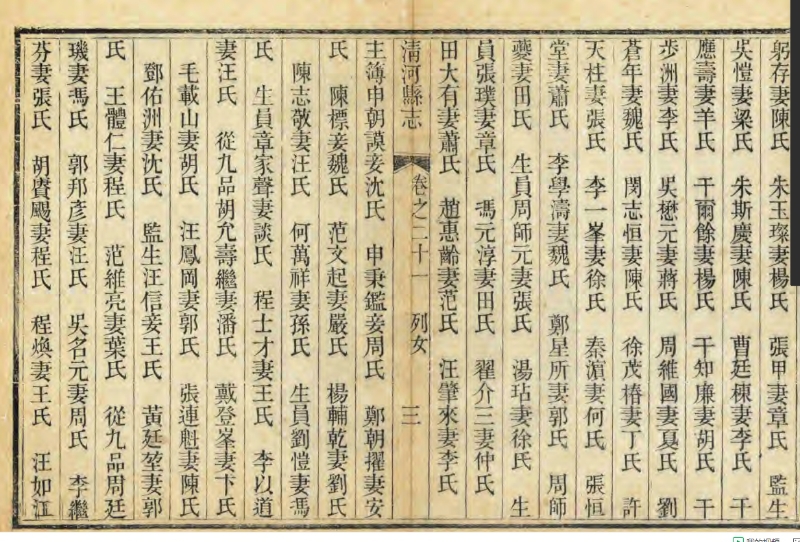 躬存妻陳氏　朱玉璨妻楊氏　張甲妻章氏　監生
吳愷妻梁氏　朱斯慶妻陳氏　曹廷棟妻李氏　干
應壽妻羊氏　干爾餘妻楊氏　干知廉妻胡氏　干
步洲妻李氏　吳懋元妻蔣氏　周維國妻夏氏　劉
蒼年妻魏氏　閔志恒妻陳氏　徐茂椿妻丁氏　許
天柱妻張氏　李一峯妻徐氏　秦濵妻何氏　張恒
堂妻蕭氏　李學濤妻魏氏　鄭星所妻郭氏　周師
夔妻田氏　生員周師元妻張氏　湯玷妻徐氏　生
員張璞妻章氏　馮元淳妻田氏　翟介三妻仲氏
田大有妻蕭氏　趙惠齡妻范氏　汪肇來妻李氏
清河縣志　卷之二十一　列女　三
主簿申朝謨妾沈氏　申秉鑑妾周氏　鄭朝擢妻安
氏　陳標妾魏氏　范文起妻嚴氏　楊輔乾妻劉氏
陳志敬妻汪氏　何萬祥妻孫氏　生員劉愷妻馮
氏　生員章家聲妻談氏　程士才妻王氏　李以道
妻汪氏　從九品胡允壽繼妻潘氏　戴登峯妻卞氏
毛載山妻胡氏　汪鳳岡妻郭氏　張連魁妻陳氏
鄧佑洲妻沈氏　監生汪信妾王氏　黃廷堃妻郭
氏　王體仁妻程氏　范維亮妻葉氏　從九品周廷
璣妻馮氏　郭邦彥妻汪氏　吳名元妻周氏　李繼
芬妻張氏　胡賡颺妻程氏　程煥妻王氏　汪如江